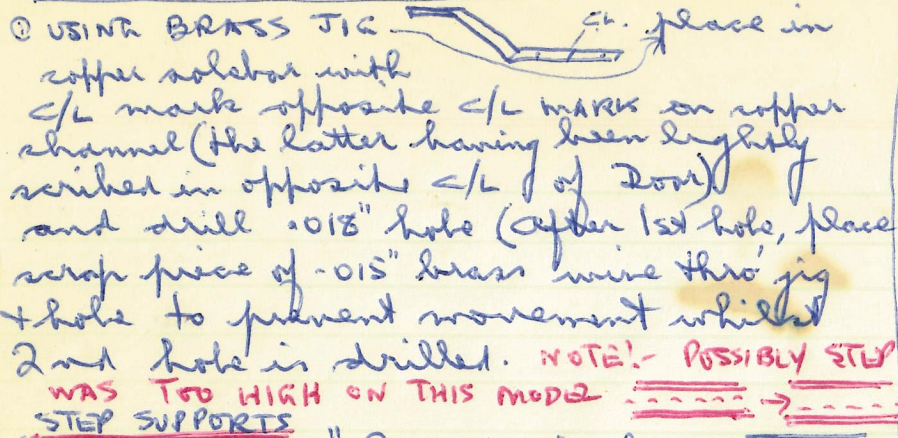 ① USING BRASS JIG C/L. place in
copper solebar with
C/L mark opposite C/L MARK on copper
channel (the latter having been lightly
scribed in opposite C/L of Door)
and drill .018" hole (after 1st hole, place
scrap piece of .015" brass wire thro' jig
+ hole to prevent movement whilst
2nd hole is drilled. NOTE:- POSSIBLY STEP
WAS TOO HIGH ON THIS MODEL
STEP SUPPORTS